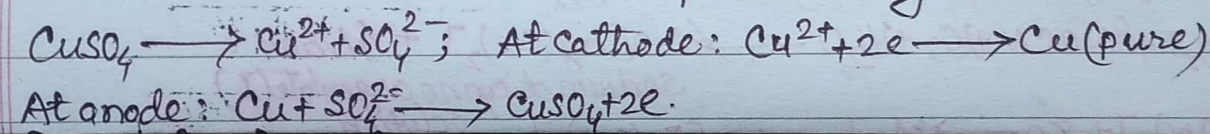 CuSO₄ ⟶ Cu²⁺ + SO₄²⁻; At cathode: Cu²⁺ + 2e ⟶ Cu(pure)
At anode: Cu + SO₄²⁻ ⟶ CuSO₄ + 2e.